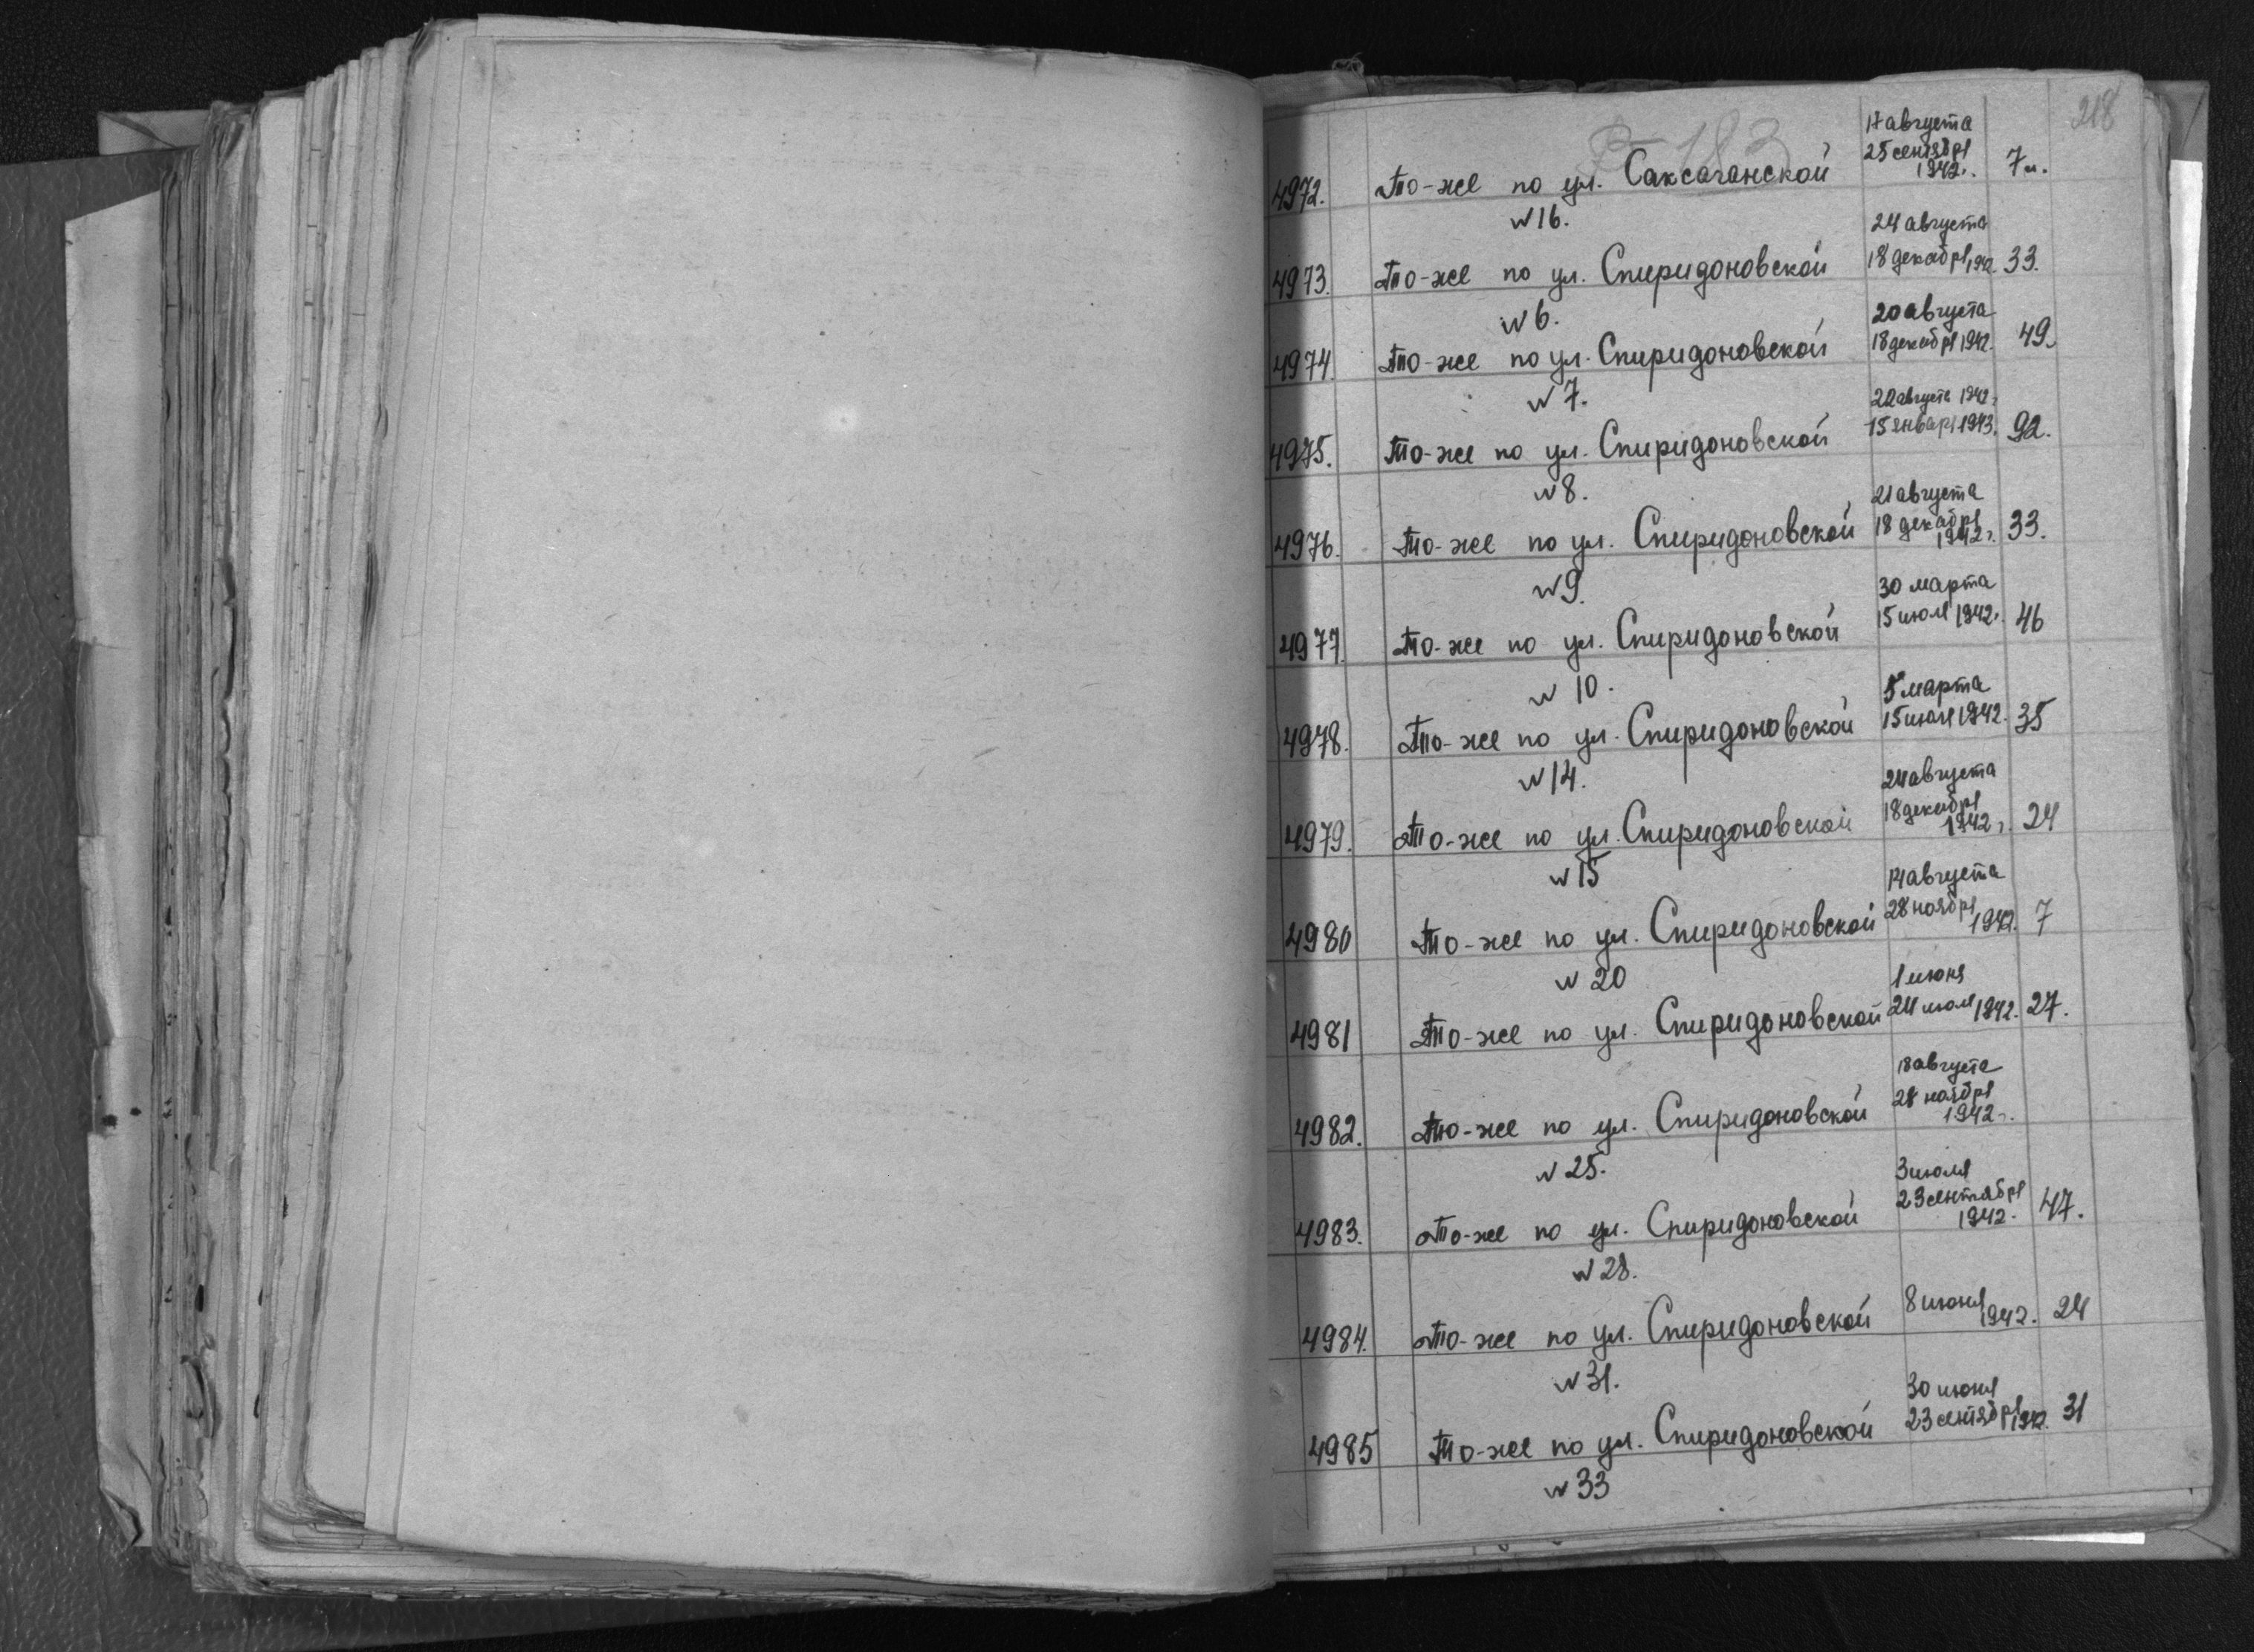 218
Р-183
17 августа
25 сентября
1942г.
4972. То-же по ул. Саксаганской 7 л.
№ 16.
24 августа
4973. То-же по ул. Спиридоновской 18 декабря 1942. 33.
№ 6.
20 августа
4974. То-же по ул. Спиридоновской 18 декабря 1942. 49.
№ 7.
22 августа 1942г.
4975. То-же по ул. Спиридоновской 15 января 1943. 92.
№ 8.
21 августа
18 декабря
4976. То-же по ул. Спиридоновской 1942г. 33.
№ 9.
30 марта
4977. То-же по ул. Спиридоновской 15 июля 1942г. 46
№ 10.
5 марта
4978. То-же по ул. Спиридоновской 15 июля 1942. 35
№ 14.
24 августа
18 декабря
4979. То-же по ул. Спиридоновской 1942г. 24
№ 15
14 августа
28 ноября
4980 То-же по ул. Спиридоновской 1942. 7
№ 20
1 июня
4981 То-же по ул. Спиридоновской 24 июля 1942. 27.
18 августа
28 ноября
4982. То-же по ул. Спиридоновской 1942г.
№ 25.
3 июля
23 сентября
4983. То-же по ул. Спиридоновской 1942. 47.
№ 28.
8 июня
4984. То-же по ул. Спиридоновской 1942. 24
№ 31.
30 июня
4985 То-же по ул. Спиридоновской 23 сентября 1942. 31
№ 33